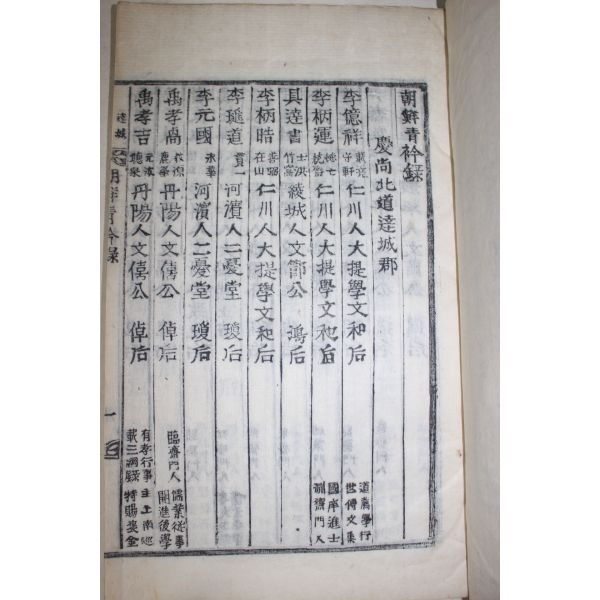 朝鮮青衿錄
慶尚北道達城郡
李億祥 仁川人大提學文和后 道義學行 世傳文集
李柄運 仁川人大提學文和后 國庠進士 門人
具達書 士洪 竹黨 綾城人文節公 鴻后
李柄晧 在山 仁川人大提學文和后
李璡道 貫一 河濱人二憂堂 瓊后
李元國 河濱人二憂堂 瓊后
禹孝卨 丹陽人文僖公 倬后 臨齋門人 儒業從事 開進後學
禹孝吉 丹陽人文僖公 倬后 有孝行事 載三綱錄 主上南巡 特賜奬金
達城 朝鮮青衿錄 一